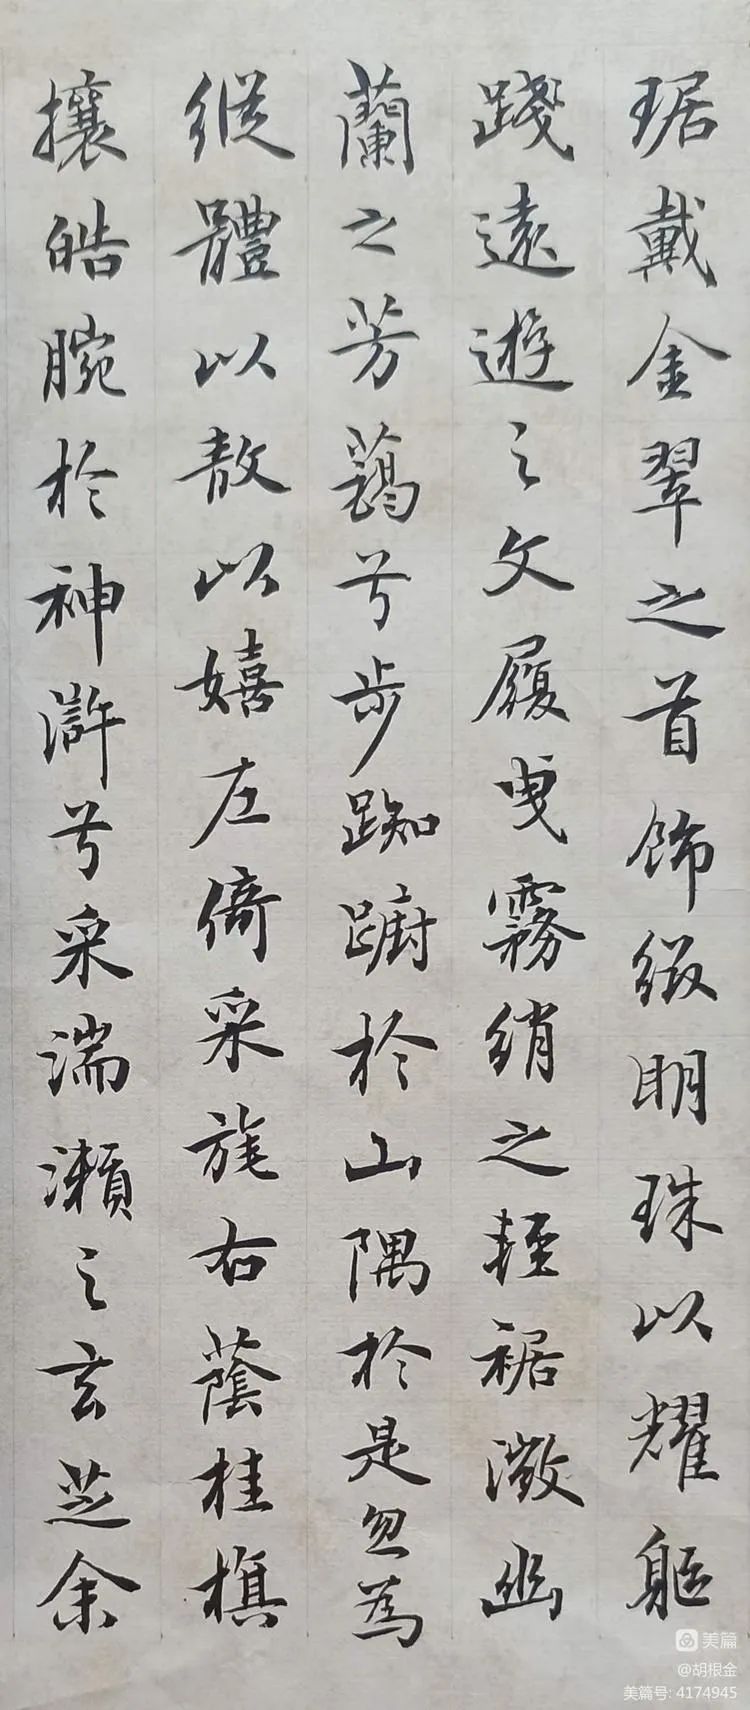 琚戴金翠之首飾綴明珠以耀軀
踐遠遊之文履曳霧綃之輕裾微幽
蘭之芳藹兮步踟躕於山隅於是忽為
縱體以敖以嬉左倚采旄右蔭桂旗
攘皓腕於神滸兮采湍瀨之玄芝余
美篇
@胡根金
美篇号: 4174945